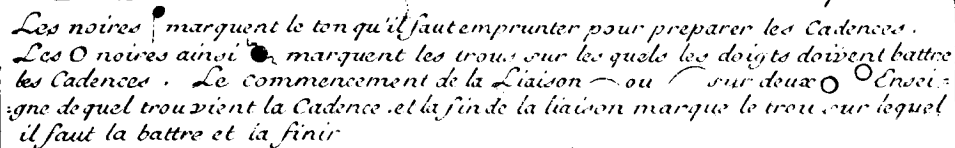 Les noires marquent le ton qu'il faut emprunter pour preparer les Cadences.
Les O noires ainsi marquent les trous sur les quels les doigts doivent battre
les Cadences. Le commencement de la Liaison ou sur deux O O Ensei=
=gne de quel trou vient la Cadence. et la fin de la liaison marque le trou sur lequel
il faut la battre et la finir